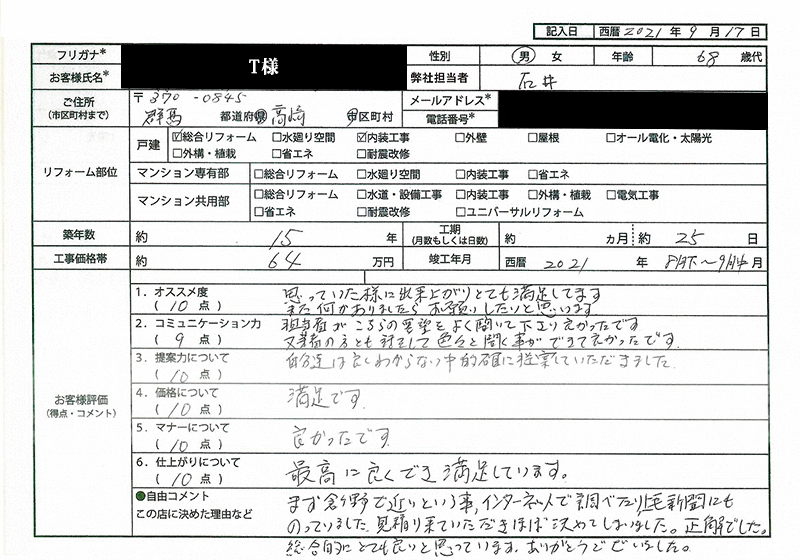 記入日 西暦 2021 年 9 月 17 日
フリガナ* T様 性別 男 女 年齢 68 歳代
お客様氏名* 弊社担当者 石井
ご住所 (市区町村まで) 〒370-0845 メールアドレス*
群馬 都道府県 高崎 市区町村 電話番号*
リフォーム部位
戸建 ☑総合リフォーム □水廻り空間 ☑内装工事 □外壁 □屋根 □オール電化・太陽光
□外構・植栽 □省エネ □耐震改修
マンション専有部 □総合リフォーム □水廻り空間 □内装工事 □省エネ
マンション共用部 □総合リフォーム □水道・設備工事 □内装工事 □外構・植栽 □電気工事
□省エネ □耐震改修 □ユニバーサルリフォーム
築年数 約 15 年 工期 (月数もしくは日数) 約 ヵ月 約 25 日
工事価格帯 約 64 万円 竣工年月 西暦 2021 年 8月下〜9月中 月
お客様評価
(得点・コメント)
1. オススメ度 思っていた様に出来上がりとても満足してます
(10 点) また何かありましたらお願いしたいと思います
2. コミュニケーション力 担当者がこちらの要望をよく聞いて下さり良かったです
(9 点) 又業者の方とも対して色々と聞く事ができて良かったです.
3. 提案力について 自分達は良くわからない中的確に提案していただきました.
(10 点)
4. 価格について 満足です.
(10 点)
5. マナーについて 良かったです
(10 点)
6. 仕上がりについて 最高に良くでき満足しています。
(10 点)
●自由コメント まず倉賀野で近いという事,インターネットで調べたり上毛新聞にも
この店に決めた理由など のっていました.見積り来ていただきほぼ決めてしまいました。正解でした。
総合的にとても良いと思っています.ありがとうございました。